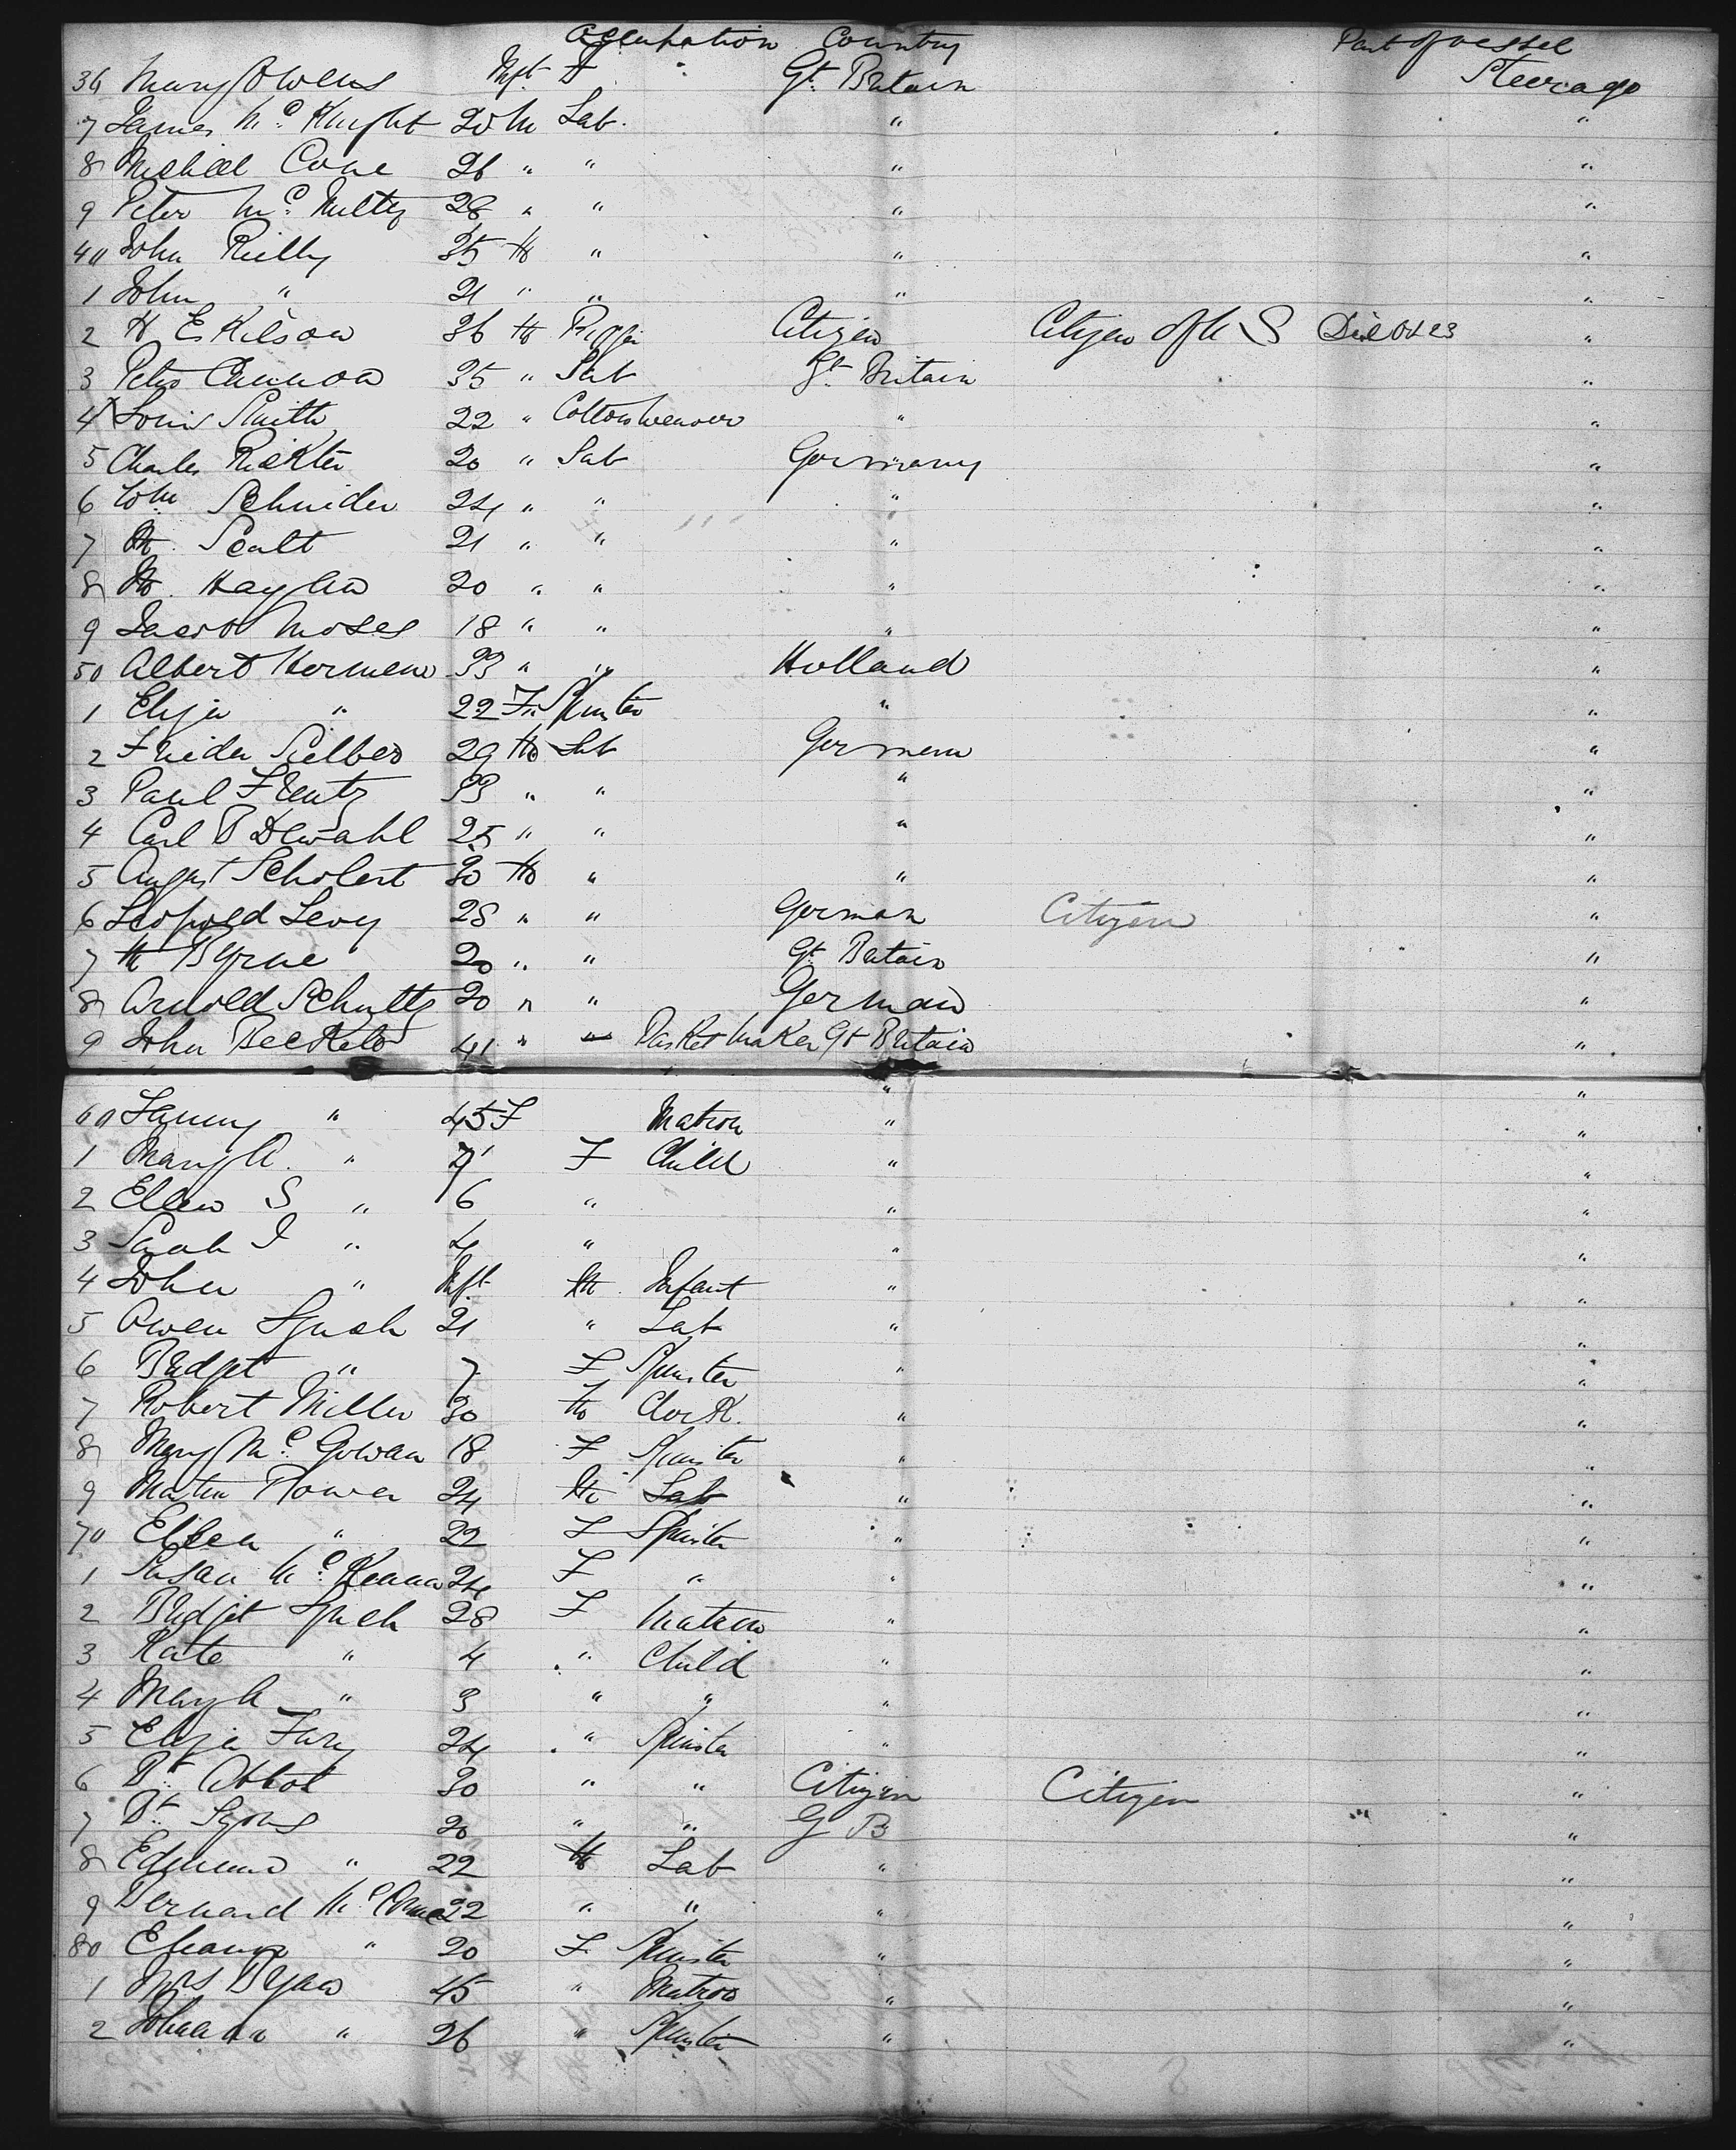 Occupation Country Part of vessel
36 Mary Owens Inft F Gt. Britain Steerage
7 James Mc. Knight 20 M Lab. " "
8 Michael Cone 26 " " " "
9 Peter Mc. Nulty 28 " " " "
40 John Reilly 35 M " " "
1 John " 21 " " " "
2 H E Kilson 36 M Citizen Citizen of U S Died Oct 23 "
3 Peter Cannon 35 " Lab Gt. Britain "
4 Louis Smith 22 " Cotton weaver " "
5 Charles Rickter 20 " Lab Germany "
6 Wm Schnider 24 " " " "
7 M. Scalt 21 " " " "
8 M. 20 " " " "
9 Jacob Moses 18 " " " "
50 Albert Hermen 33 " " Holland "
1 Eliza " 22 F Spinster " "
2 29 M Lab German "
3 Paul 33 " " " "
4 Carl B 25 " " " "
5 August Scholert 30 M " " "
6 Leopold Levy 28 " " German Citizen "
7 M Byrne 20 " " Gt. Britain "
8 Arnold Schultz 20 " " German "
9 John 41 " " Basket Maker Gt Britain "
" "
60 Fanny " 45 F Matron " "
1 Mary A. " 7 F Child " "
2 Ellen S " 6 " " "
3 Sarah J " 4 " " "
4 John " Inft M Infant " "
5 Owen Lynch 21 " Lab " "
6 Bridget " 7 F Spinster " "
7 Robert Miller 30 M Clerk. " "
8 Mary Mc. Gowan 18 F Spinster " "
9 Martin Power 24 M Lab " "
70 Ellen " 22 F Spinster " "
1 Susan Mc. Kenna 24 F " " "
2 Bridget Lynch 28 F Matron " "
3 Kate " 4 " Child " "
4 Mary A " 3 " " " "
5 Eliza Fury 24 " Spinster " "
6 Bt. Abbot 30 " " Citizen Citizen "
7 Bt. Lyons 20 " " G B "
8 Edmund " 22 M Lab " "
9 Bernard Mc. 22 " " " "
80 " 20 F Spinster " "
1 Mrs Ryan 45 " Matron " "
2 Johanna " 26 " Spinster " "